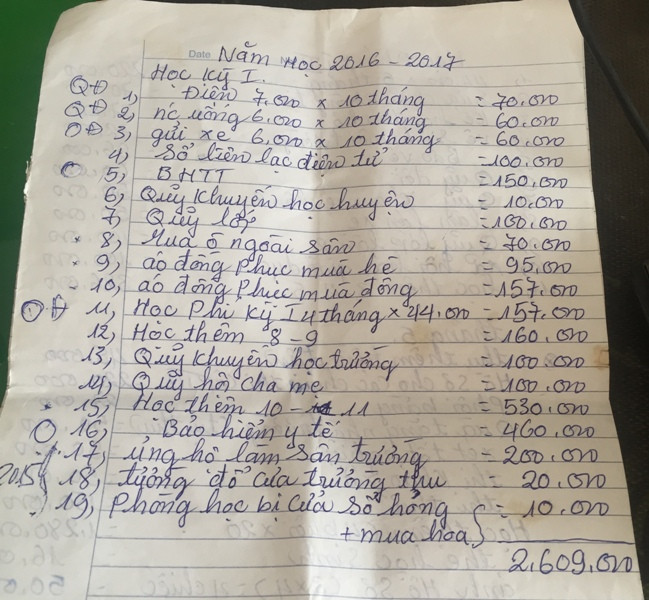 Date
Năm học 2016 - 2017
Học kỳ I.
QĐ 1, Điện 7.000 x 10 tháng = 70.000
QĐ 2, nc uống 6.000 x 10 tháng = 60.000
QĐ 3, gửi xe 6.000 x 10 tháng = 60.000
4, Sổ liên lạc điện tử = 100.000
O 5, BHTT = 150.000
6, Quỹ khuyến học huyện = 10.000
7, Quỹ lớp = 100.000
8, Mua ô ngoài sân = 70.000
9, áo đồng phục mùa hè = 95.000
10, áo đồng phục mùa đông = 157.000
QĐ 11, Học Phí kỳ I 4 tháng x 44.000 = 157.000
12, Học thêm 8 - 9 = 160.000
13, Quỹ khuyến học trường = 100.000
14, Quỹ hội cha mẹ = 100.000
15, Học thêm 10 - 11 = 530.000
O 16, Bảo hiểm y tế = 460.000
17, ủng hộ làm sân trường = 200.000
2015 18, tường đổ của trường thu = 20.000
19, Phòng học bị cửa sổ hỏng = 10.000
+ mua hoa
2.609.000